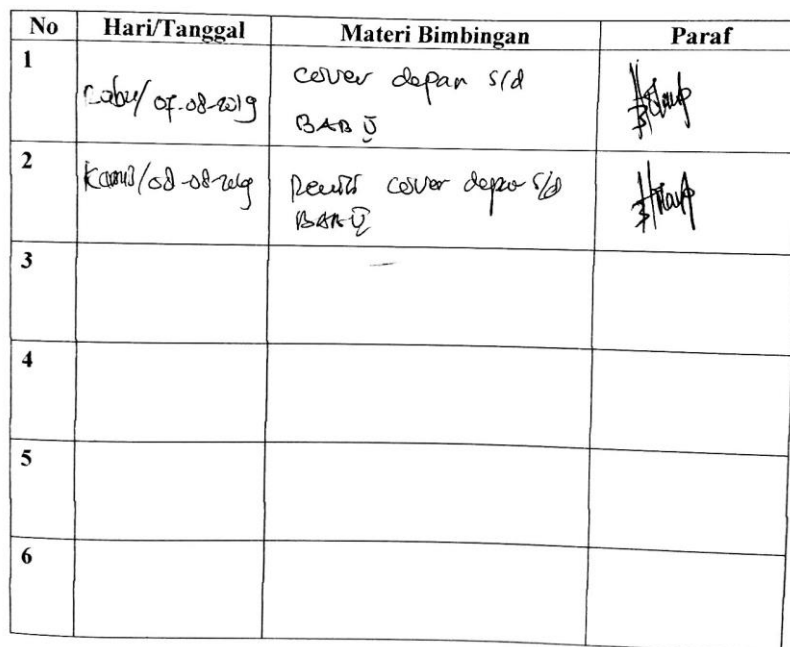 No Hari/Tanggal Materi Bimbingan Paraf
1
Rabu/ 07-08-2019
cover depan s/d
BAB V
2
Kamis/08-08-2019
Revisi cover depan s/d
BAB V
3
4
5
6